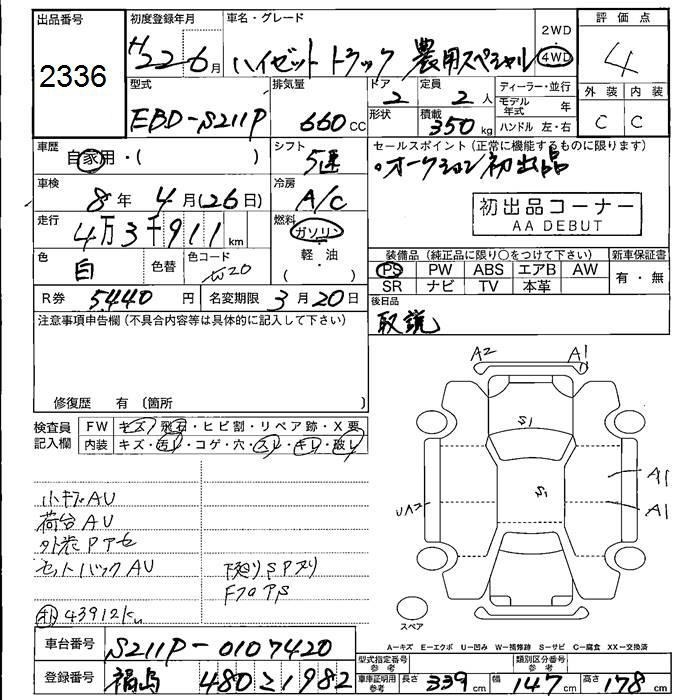 出品番号
2336
初度登録年月
H22-6月
車名・グレード
ハイゼット トラック 農用スペシャル
2WD
4WD
評価点
4
外装 内装
C C
型式
EBD-S211P
排気量
660cc
ドア
2
定員
2人
形状
積載
350kg
ディーラー・並行
モデル年式 年
ハンドル 左・右
車歴
自家用・( )
シフト
5速
車検
8年 4月(26日)
冷房
A/C
走行
4万3千911km
燃料
ガソリン
軽・油
( )
色
白
色替
色コード
W20
R券 5440円
名変期限 3月20日
セールスポイント(正常に機能するものに限ります)
・オークション初出品
初出品コーナー
AA DEBUT
装備品(純正品に限り○をつけて下さい)
新車保証書
PS PW ABS エアB AW
SR ナビ TV 本革
有・無
後日品
取説
注意事項申告欄(不具合内容等は具体的に記入して下さい)
修復歴 有 〔箇所 〕
検査員記入欄
FW キズ・飛石・ヒビ割・リペア跡・X要
内装 キズ・汚れ・コゲ・穴・スレ・キレ・破れ
小キズAU
荷台AU
外装Pアセ
セットバックAU
下廻りSPヌリ
FフロアS
43912km
A2 A1
S1
S1
A1
A1
UA2
スペア
A―キズ E―エクボ U―凹み W―補修跡 S―サビ C―腐食 XX―交換済
車台番号
S211P-0107420
登録番号
福島 480こ1982
型式指定番号
参考
類別区分番号
参考
車庫証明用
参考
長さ 339cm
幅 147cm
高さ 178cm